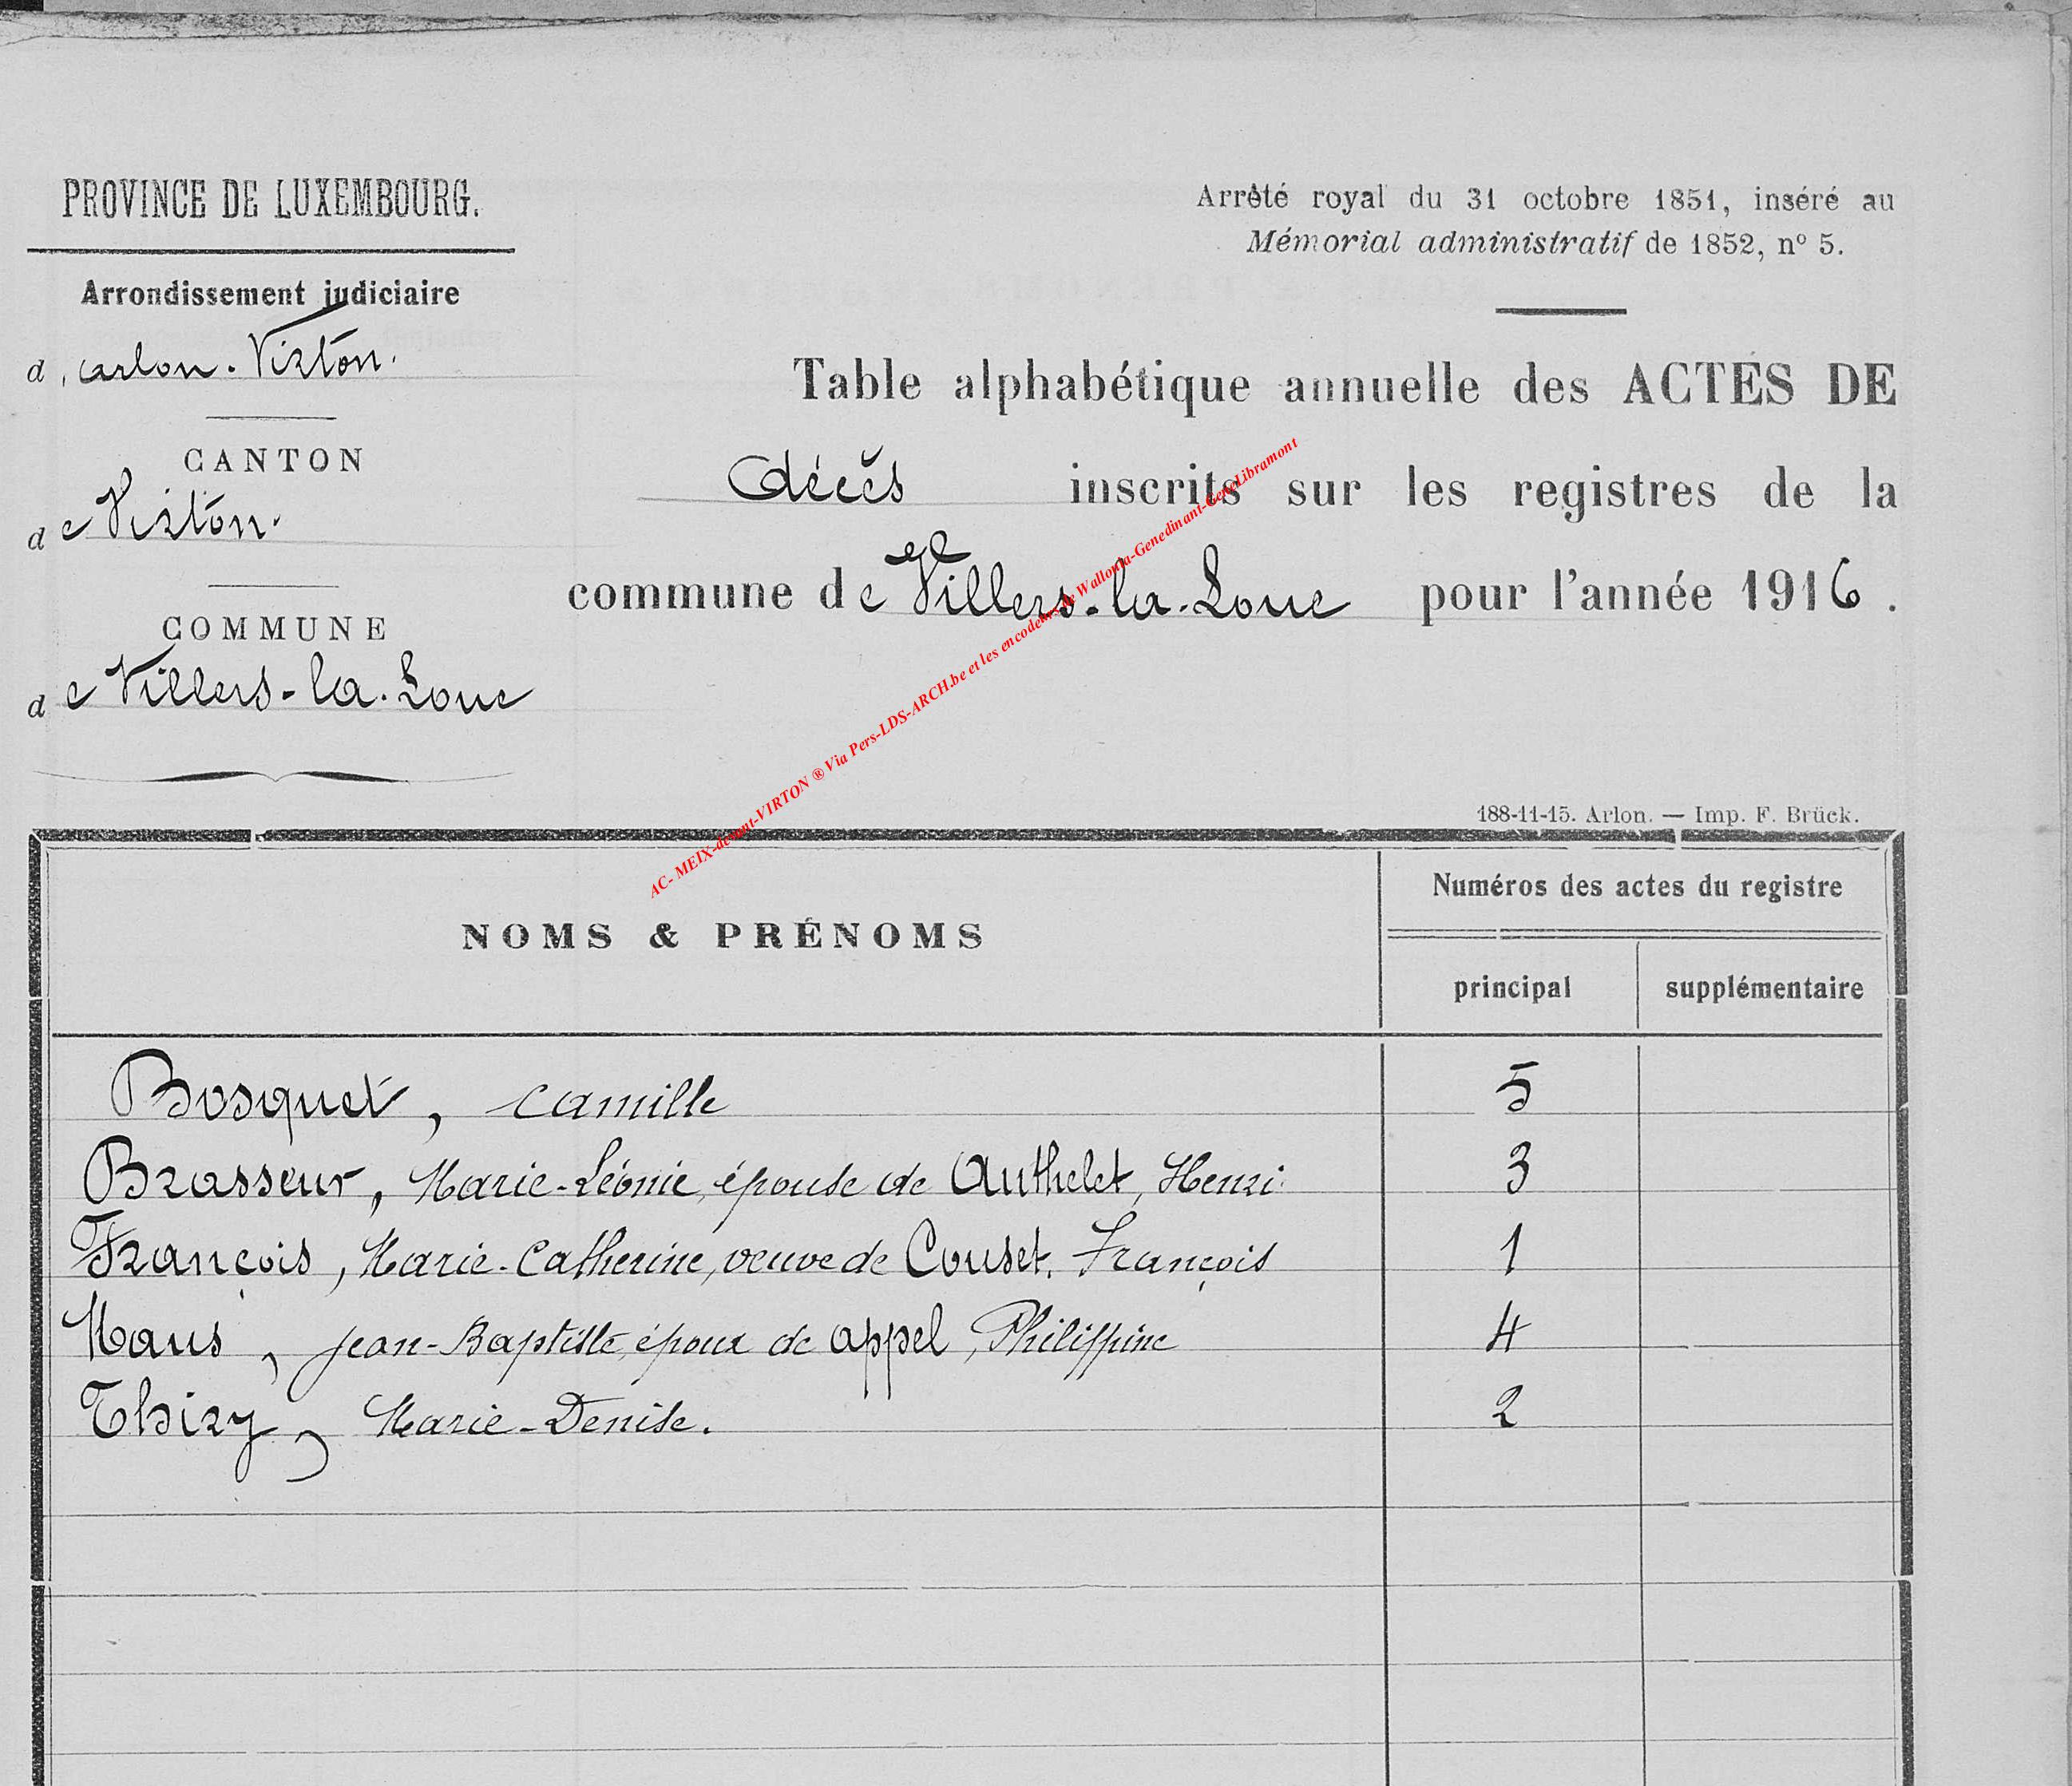 PROVINCE DE LUXEMBOURG.
Arrondissement judiciaire
d'arlon-Virton.
CANTON
de Virton.
COMMUNE
de Villers-la-Loue
Arrêté royal du 31 octobre 1851, inséré au
Mémorial administratif de 1852, nº 5.
Table alphabétique annuelle des ACTES DE
décès inscrits sur les registres de la
commune de Villers-la-Loue pour l'année 1916.
AC- MEIX-devant-VIRTON ® Via Pers-LDS-ARCH.be et les encodeurs de Wallonia-Genedinant-GeneLibramont
188-11-15. Arlon. — Imp. F. Brück.
NOMS & PRÉNOMS Numéros des actes du registre
principal supplémentaire
Bosquet, Camille 5
Brasseur, Marie-Léonie, épouse de Authelet, Henri 3
François, Marie-Catherine, veuve de Couset, François 1
Maus, Jean-Baptiste, époux de appel, Philippine 4
Thiry, Marie-Denise. 2